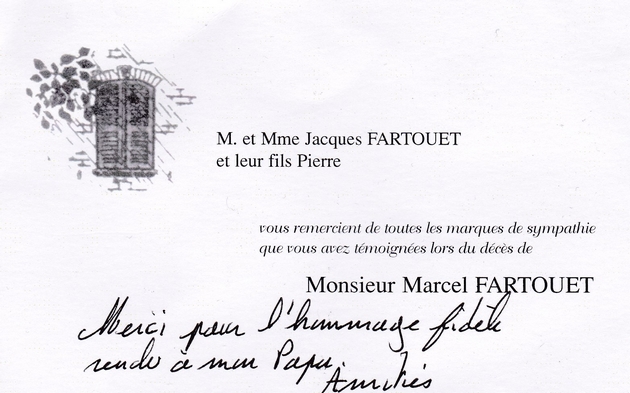 M. et Mme Jacques FARTOUET
et leur fils Pierre
vous remercient de toutes les marques de sympathie
que vous avez témoignées lors du décès de
Monsieur Marcel FARTOUET
Merci pour l'hommage fidèle
rendu à mon Papa.
Amitiés